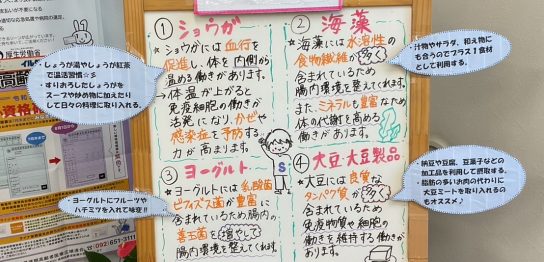 ① ショウガ
★ショウガには血行を
促進し、体を内側から
温める働きがあります。
→体温が上がると
免疫細胞の働きが
活発になり、かぜや
感染症を予防する
力が高まります。
・しょうが湯やしょうが紅茶
で温活習慣☆彡
・すりおろしたしょうがを
スープや炒め物に加えたり
して日々の料理に取り入れる。
② 海藻
★海藻には水溶性の
食物繊維が多く
含まれているため
腸内環境を整えてくれます。
また ミネラルも豊富なため
体の代謝を高める
働きがあります。
・汁物やサラダ、和え物に
も合うのでプラス1食材
として利用する。
③ ヨーグルト
★ヨーグルトには乳酸菌
ビフィズス菌が豊富に
含まれているため腸内の
善玉菌を増やして
腸内環境を整えてくれます。
・ヨーグルトにフルーツや
ハチミツを入れて味変!!
S
④ 大豆・大豆製品
★大豆には良質な
タンパク質が多く
含まれているため
免疫物質や細胞の
働きを維持する働きが
あります。
・納豆や豆腐、豆菓子などの
加工品を利用して摂取する。
・脂肪の多いお肉の代わりに
大豆ミートを取り入れるの
もオススメ♪
厚生労働省
☎(092)651-3111